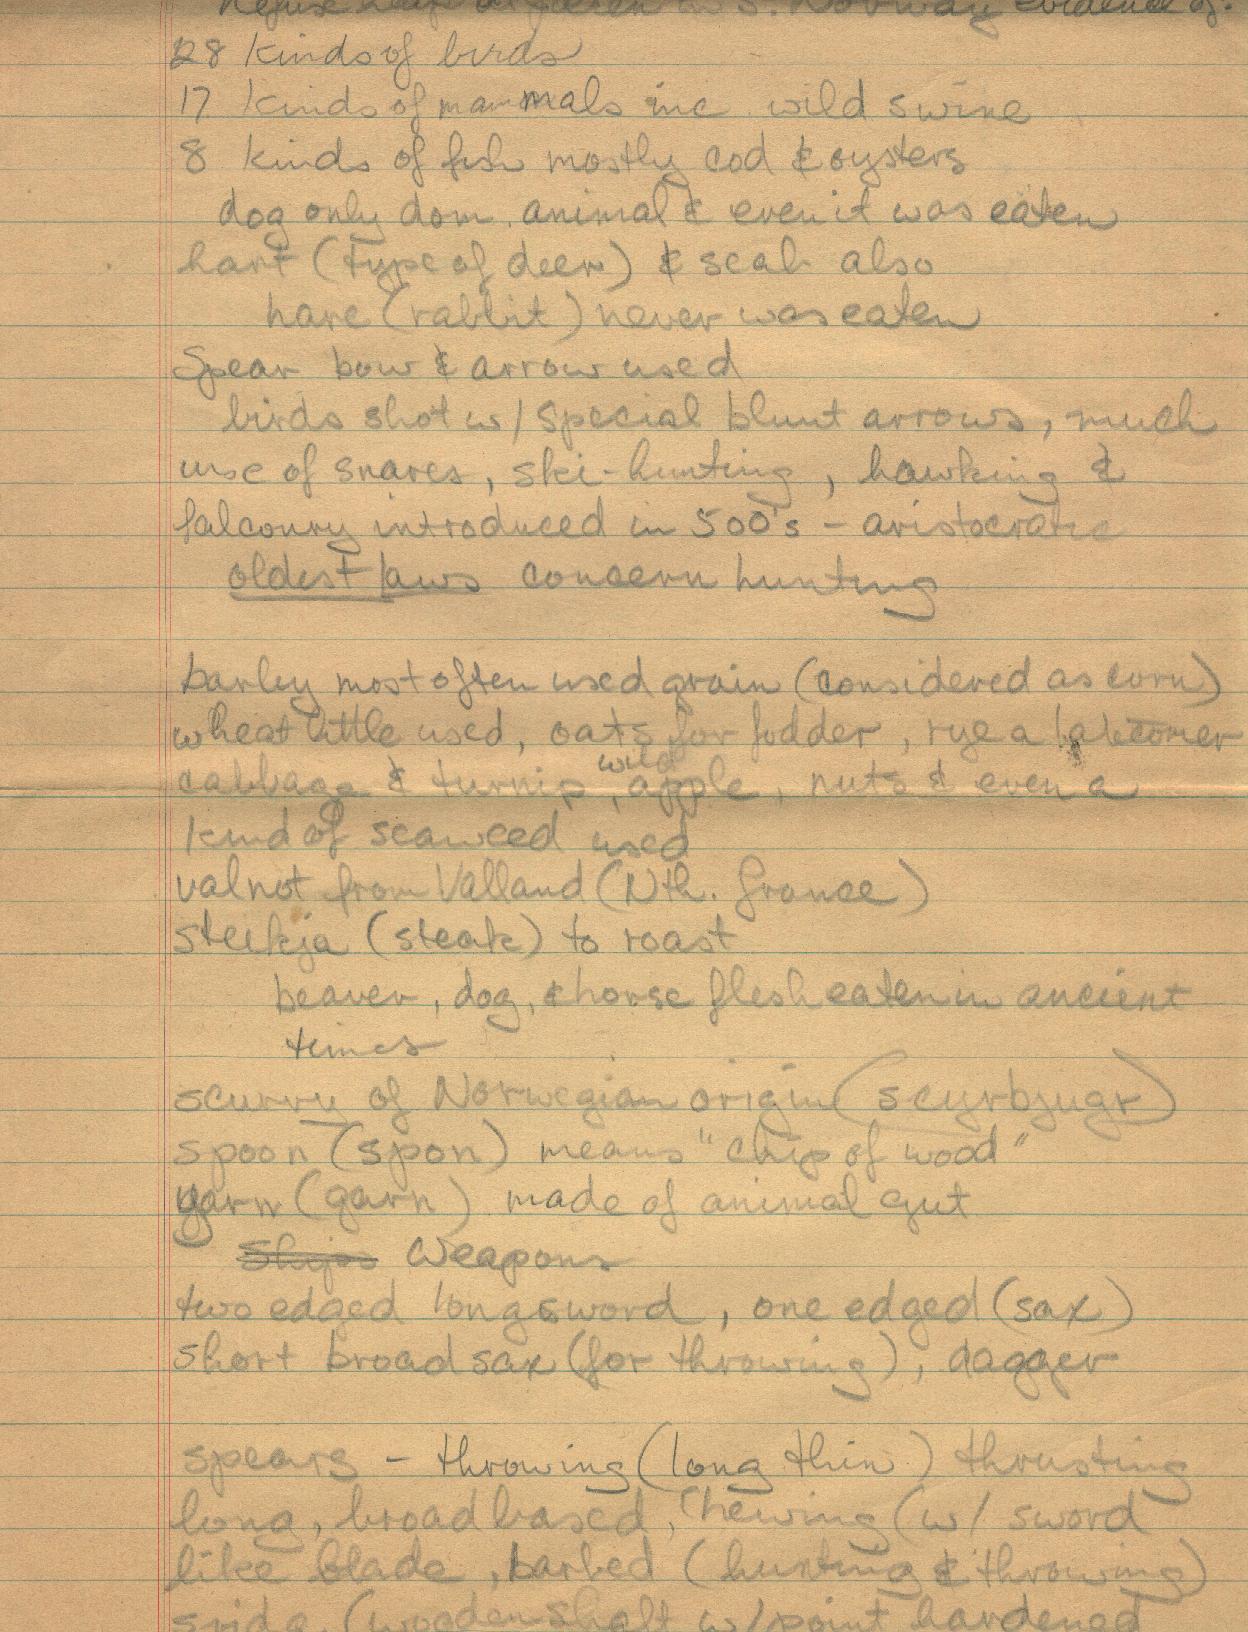 Refuse heaps in S. Norway evidence of:
28 kinds of birds
17 kinds of mammals inc. wild swine
8 kinds of fish mostly cod & oysters
dog only dom. animal & even it was eaten
hart (type of deer) & seal also
hare (rabbit) never was eaten
Spear bow & arrow used
birds shot w/ special blunt arrows, much
use of snares, ski-hunting, hawking &
falconry introduced in 500's - aristocratic
oldest laws concern hunting
barley most often used grain (considered as corn)
wheat little used, oats for fodder, rye a latecomer
cabbage & turnip, wild apple, nuts & even a
kind of seaweed used
valnot from Valland (Nth. France)
steikja (steak) to roast
beaver, dog, & horse flesh eaten in ancient
times
scurvy of Norwegian origin (scyrbjugr)
spoon (spon) means "chip of wood"
yarn (garn) made of animal gut
Ships Weapons
two edged longsword, one edged (sax)
short broad sax (for throwing), dagger
spears - throwing (long thin) thrusting
long, broad based, (hewing (w/ sword
like blade, barbed (hunting & throwing)
svida (wooden shaft w/ point hardened